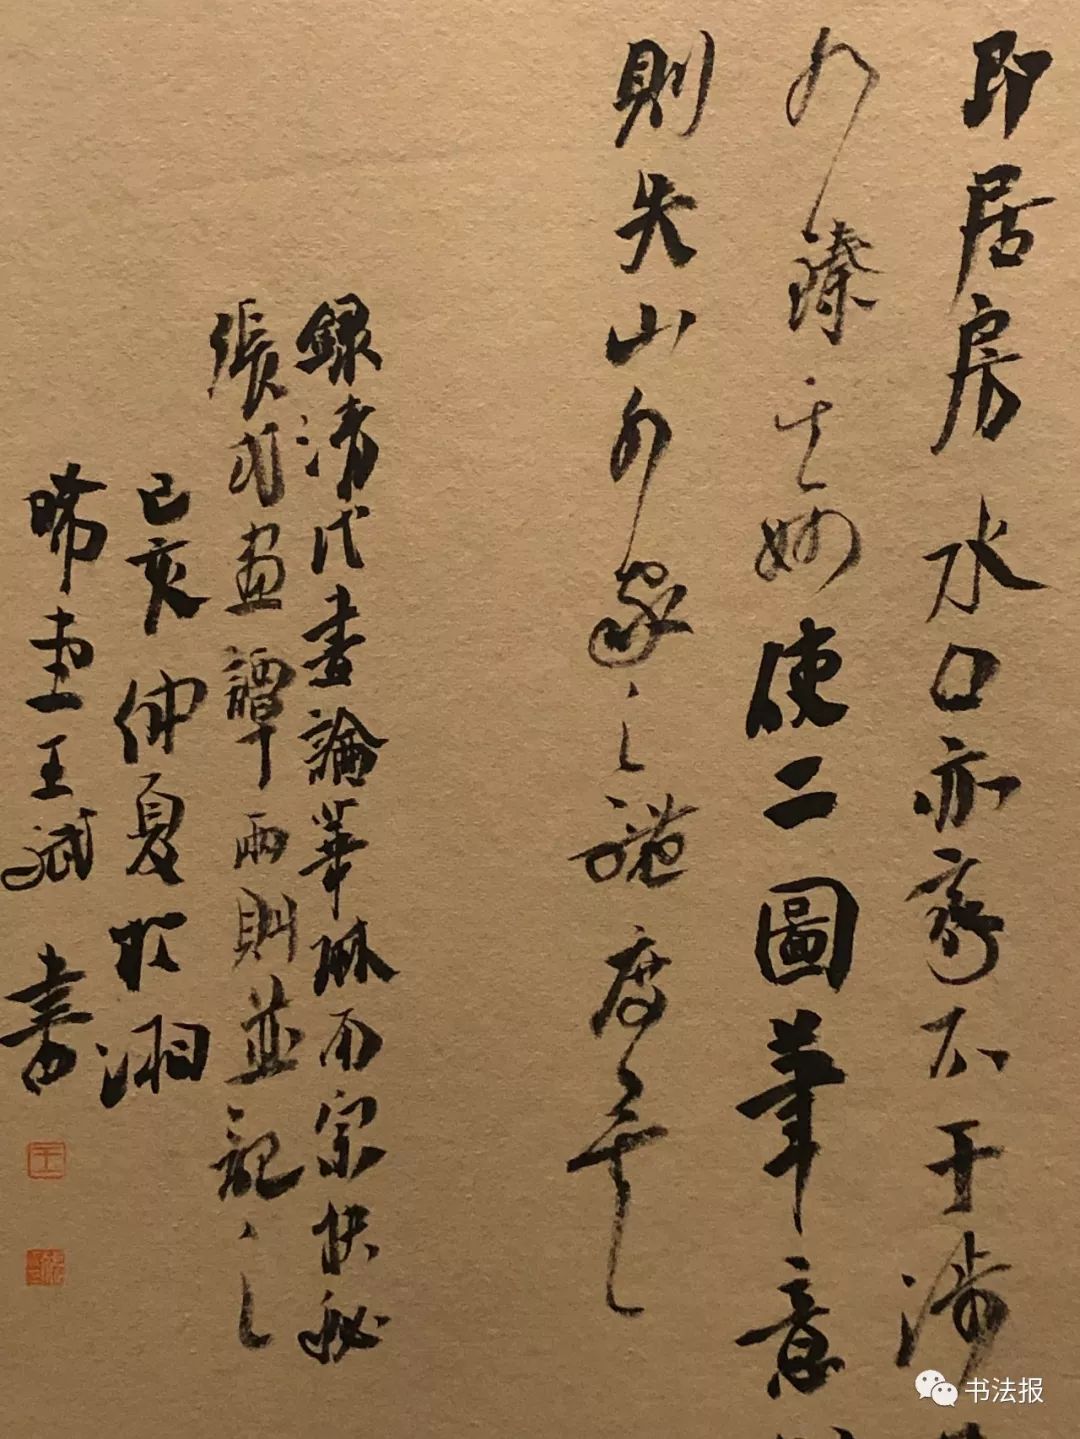 即居房水口亦家不干涉
如臻其妙使二圖筆意
則失山水家之體度矣
錄清代畫論華琳南宗抉秘
張式畫譚兩則並記之
己亥仲夏於湖
晞堂王斌書
王
书法报